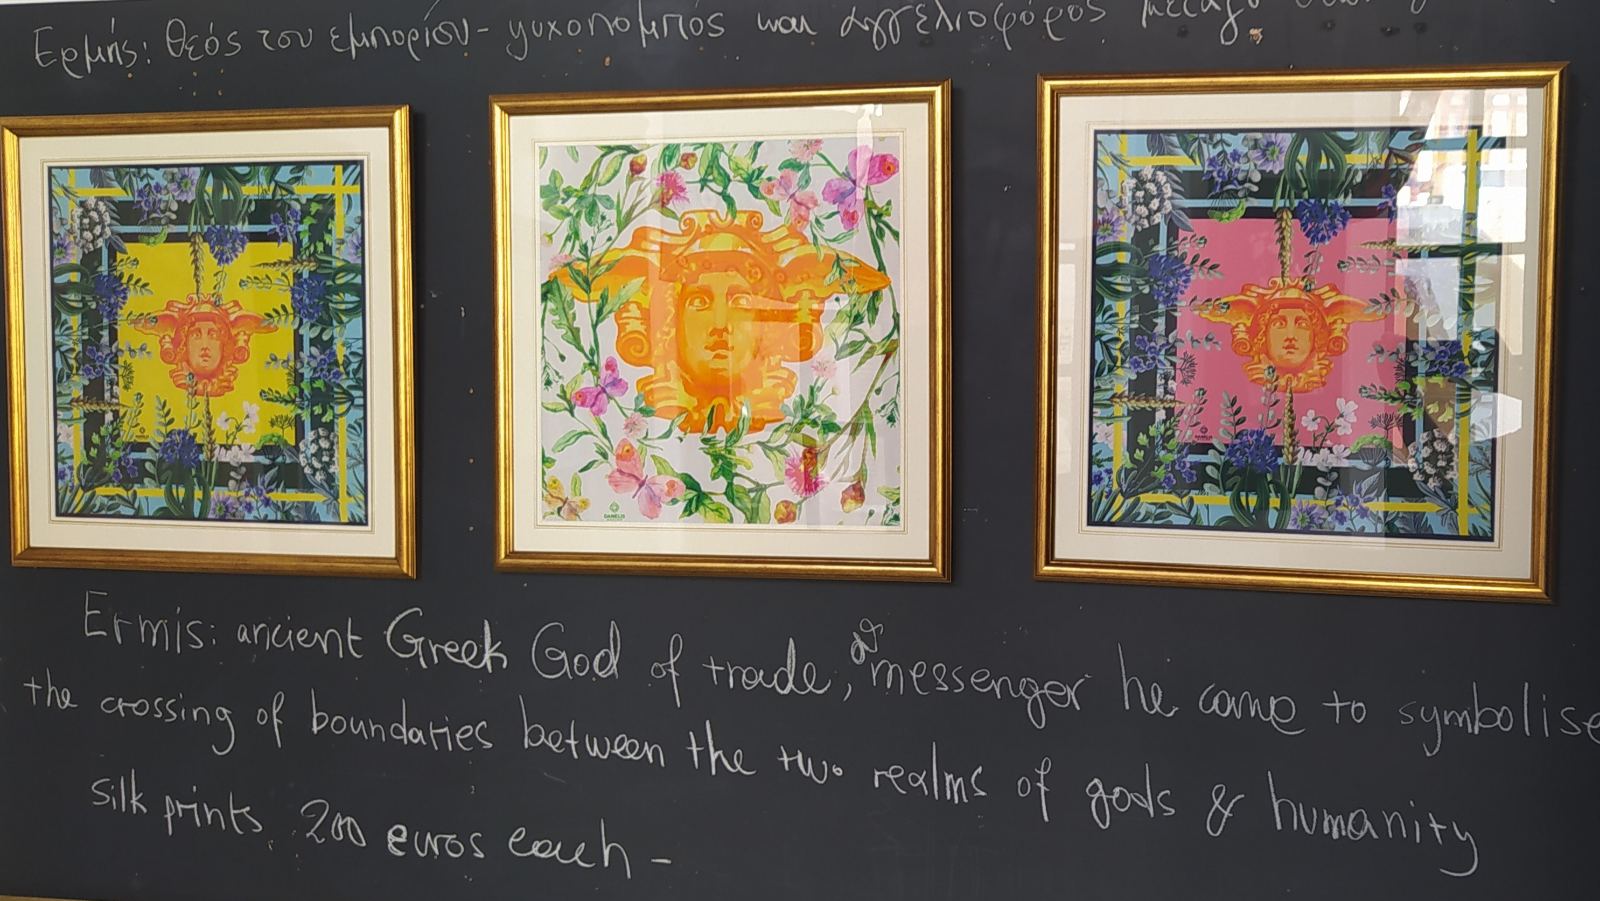 Ερμής: θεός του εμπορίου - ψυχοπομπός και αγγελιοφόρος μεταξύ
DANELIS
DANELIS
Ermis: ancient Greek God of trade, & messenger he came to symbolise
the crossing of boundaries between the two realms of gods & humanity
silk prints 200 euros each -